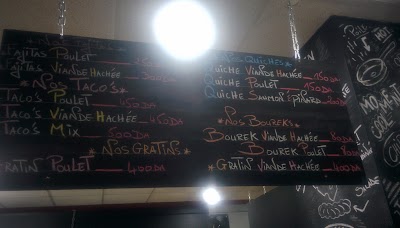 Fajitas Poulet 250DA
Fajitas Viande Hachée 300DA
*Nos Taco's*
Taco's Poulet 450DA
Taco's Viande Hachée 450DA
Taco's Mix 500DA
*Nos Gratins*
Gratin Poulet 400DA
Nos Quiches*
Quiche Viande Hachée 150DA
Quiche Poulet 150DA
Quiche Saumon Epinard 200DA
*Nos Boureks*
Bourek Viande Hachée 80DA
Bourek Poulet 80
*Gratin Viande Hachée 400DA